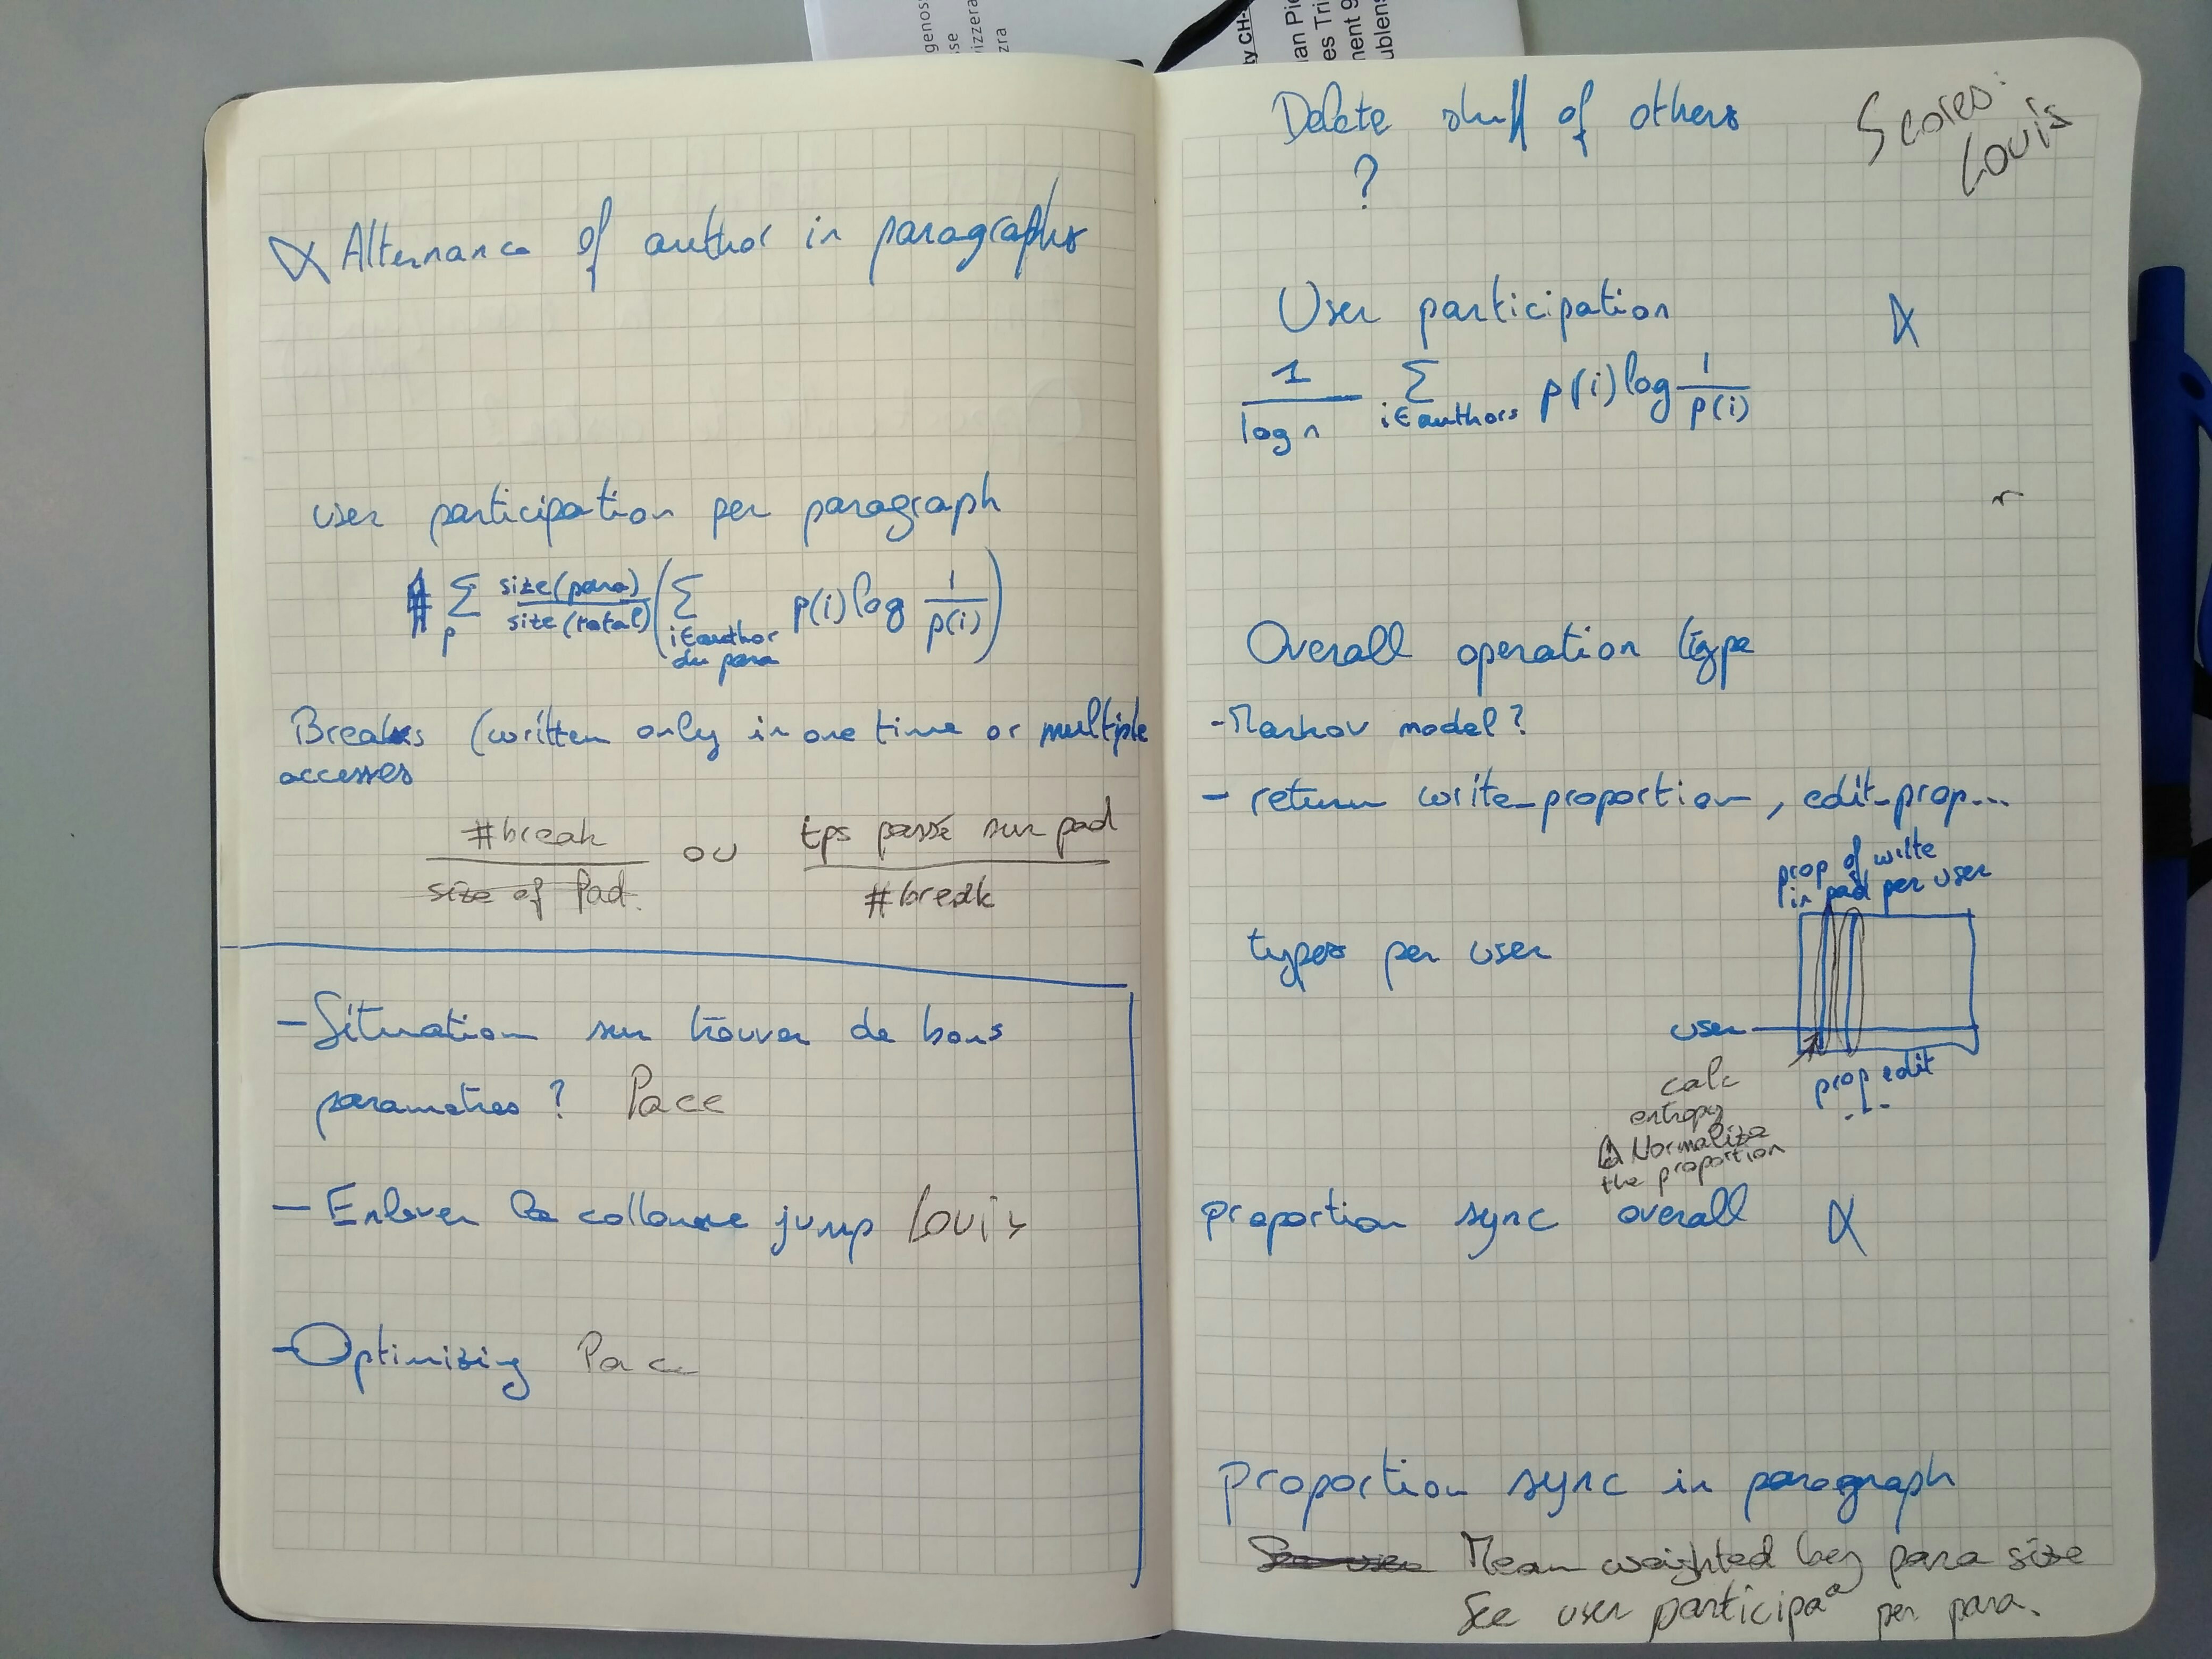 genos
se
izzera
zra
ty CH-
an Pie
es Tri
ment 9
ublens
∝ Alternance of author in paragraphs
user participation per paragraph
∑ p size(para) / size(total) ( ∑ i∈author du para p(i) log 1 / p(i) )
Breaks (written only in one time or multiple
accesses
#break / size of Pad. ou tps passé sur pad / #break
- Situation sur trouver de bons
paramètres ? Pace
- Enlever le jump Louis
- Optimizing Pace
Delete stuff of others
?
Scores:
Louis
User participation ∝
1 / log n ∑ i∈authors p(i) log 1 / p(i)
Overall operation type
- Markov model ?
- return write_proportion, edit_prop...
prop of write
in pad per user
types per user
user
prop edit
calc
entropy
⚠ Normalize
the proportion
proportion sync overall ∝
proportion sync in paragraph
Mean weighted by para size
See user participaº per para.